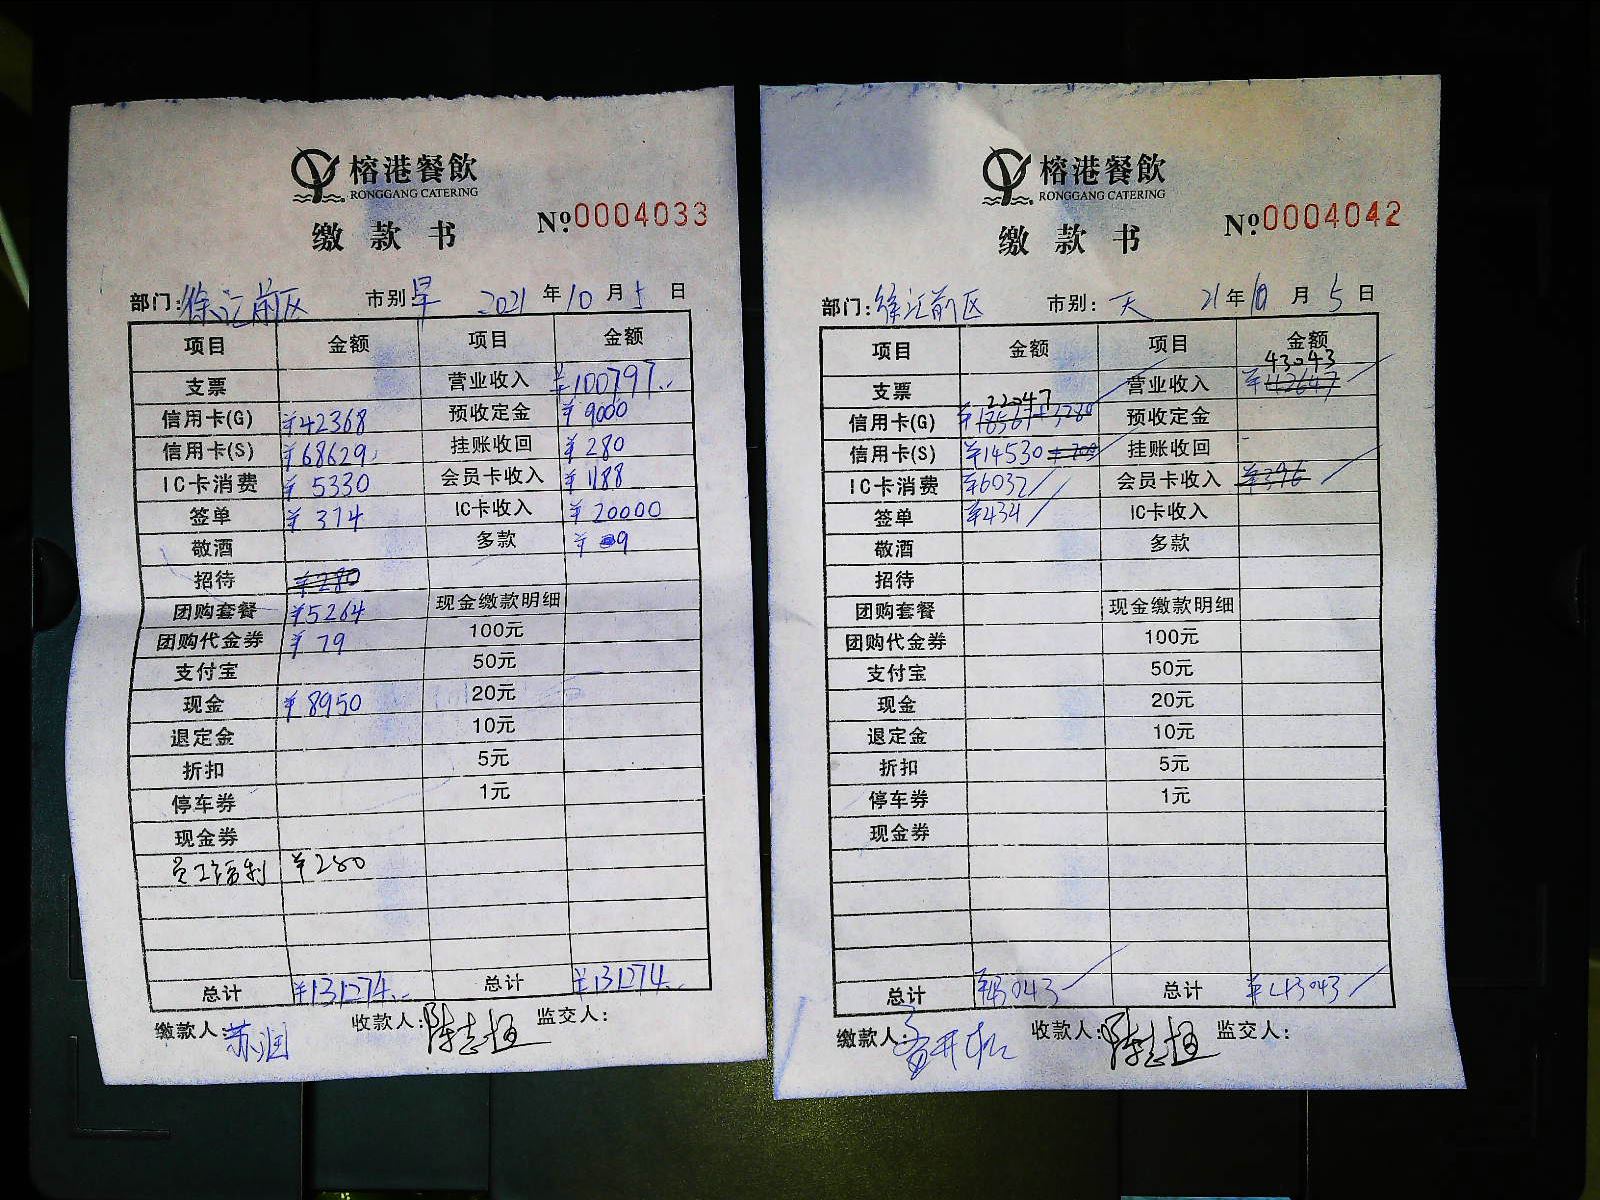 榕港餐飲
RONGGANG CATERING
缴款书 №0004033
部门:徐汇前区 市别 早 2021年10月5日
项目 金额 项目 金额
支票 营业收入 ¥100797.-
信用卡(G) ¥42368 预收定金 ¥9000
信用卡(S) ¥68629. 挂账收回 ¥280
IC卡消费 ¥5330 会员卡收入 ¥1188
签单 ¥374 IC卡收入 ¥20000
敬酒 多款 ¥9
招待 ¥280
团购套餐 ¥5264 现金缴款明细
团购代金券 ¥79 100元
支付宝 50元
现金 ¥8950 20元
退定金 10元
折扣 5元
停车券 1元
现金券
员工福利 ¥280
总计 ¥131274.- 总计 ¥131274.-
缴款人: 苏润 收款人: 陈志恒 监交人:
榕港餐飲
RONGGANG CATERING
缴款书 №0004042
部门:徐汇前区 市别: 天 21年10月5日
项目 金额 项目 金额
43043
支票 营业收入 ¥42647
22047
信用卡(G) ¥18567+3280 预收定金
信用卡(S) ¥14530+700 挂账收回 -
IC卡消费 ¥6032 会员卡收入 ¥396
签单 ¥434 IC卡收入
敬酒 多款
招待
团购套餐 现金缴款明细
团购代金券 100元
支付宝 50元
现金 20元
退定金 10元
折扣 5元
停车券 1元
现金券
总计 ¥43043 总计 ¥43043
缴款人: 收款人: 陈志恒 监交人: